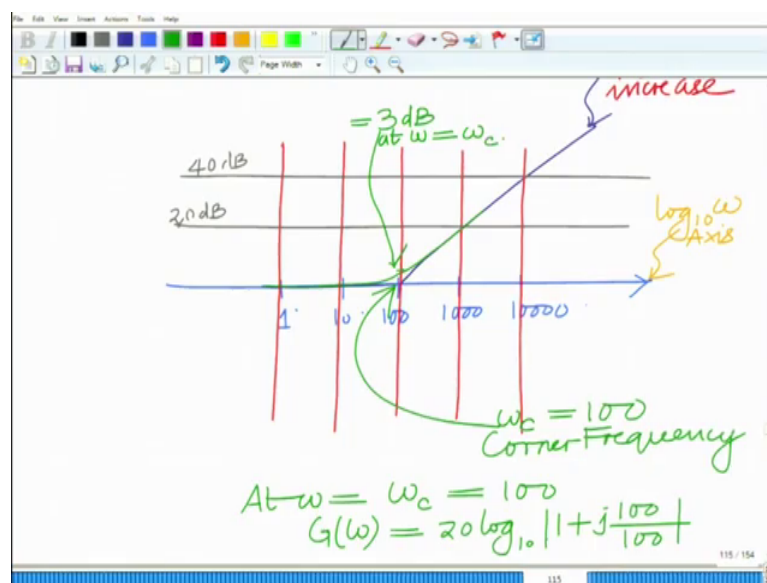 File Edit View Insert Actions Tools Help
B I
Page Width
increase
= 3dB
at ω = ωc.
40 dB
20 dB
log10 ω
Axis
1 10 100 1000 10000
ωc = 100
Corner Frequency
At ω = ωc = 100
G(ω) = 20 log10 |1 + j 100/100|
115 / 154
115